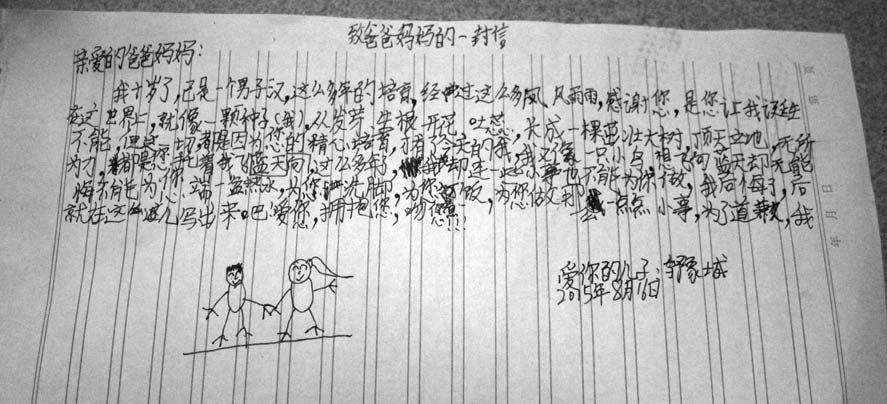 致爸爸妈妈的一封信
亲爱的爸爸妈妈:
我十岁了,已是一个男子汉,这么多年的培育,经过这么多风风雨雨,感谢您,是您让我诞生
在这世界上,就像一颗种子(我),从发芽 生根 开花 吐蕊,长成一棵茁壮大树,顶天立地,无所
不能,但这一切,都是因为您的精心培育,才有了今天的我,我又像一只小鸟 想飞向蓝天却无能
为力,都是您托着我飞蓝天向,过这么多年了,我却连一些小事也不能为你做,我后悔了,后
悔不能为你端一盆热水,为您洗脚,为您做饭,为您做一点点小事,为了道歉,我
就在这儿写出来吧 爱您,拥抱您,吻您!!!
爱你的儿子:豫城
2015年8月16日